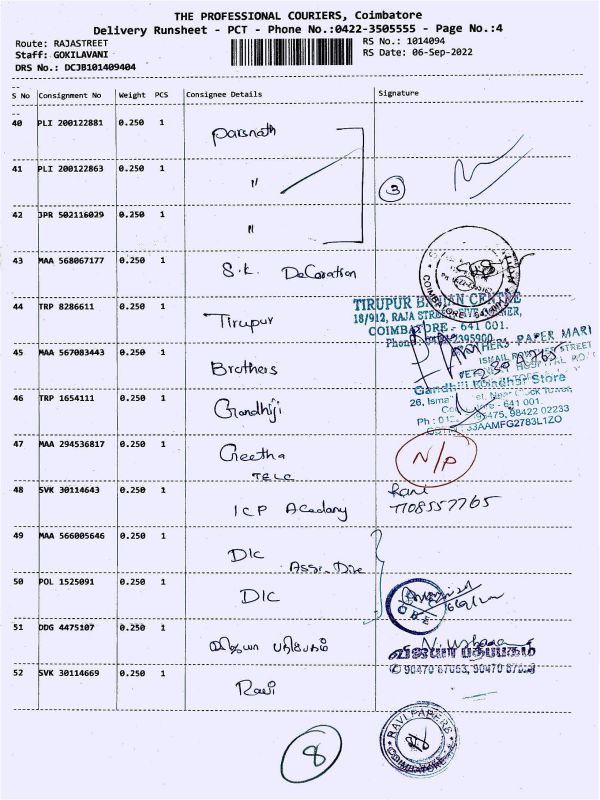 THE PROFESSIONAL COURIERS, Coimbatore
Delivery Runsheet - PCT - Phone No.:0422-3505555 - Page No.:4
Route: RAJASTREET
RS No.: 1014094
Staff: GOKILAVANI
RS Date: 06-Sep-2022
DRS No.: DCJB101409404
S No Consignment No Weight PCS Consignee Details Signature
40 PLI 200122881 0.250 1 Parsnath
41 PLI 200122863 0.250 1 " 3
42 JPR 502116029 0.250 1 "
43 MAA 568067177 0.250 1 S.K. Decoration
44 TRP 8286611 0.250 1 Tirupur
TIRUPUR CENTRE
18/912, RAJA STREET
COIMBATORE - 641 001.
45 MAA 567083443 0.250 1 Brothers
PAPER MART
46 TRP 1654111 0.250 1 Gandhiji
Gandhiji Store
641 001.
98422 02233
33AAMFG2783L1ZO
47 MAA 294536817 0.250 1 Geetha
N/P
TELC
48 SVK 30114643 0.250 1 ICP Academy
Rani
7708557765
49 MAA 566005646 0.250 1 DIC
50 POL 1525091 0.250 1 DIC
51 DDG 4475107 0.250 1 விஜயா பதிப்பகம்
விஜயா பதிப்பகம்
52 SVK 30114669 0.250 1 Ravi
RAVI PAPERS
COIMBATORE
8